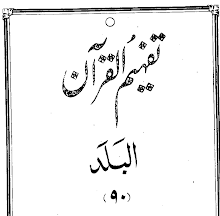 تفہیم القرآن
البَلَد
(۹۰)